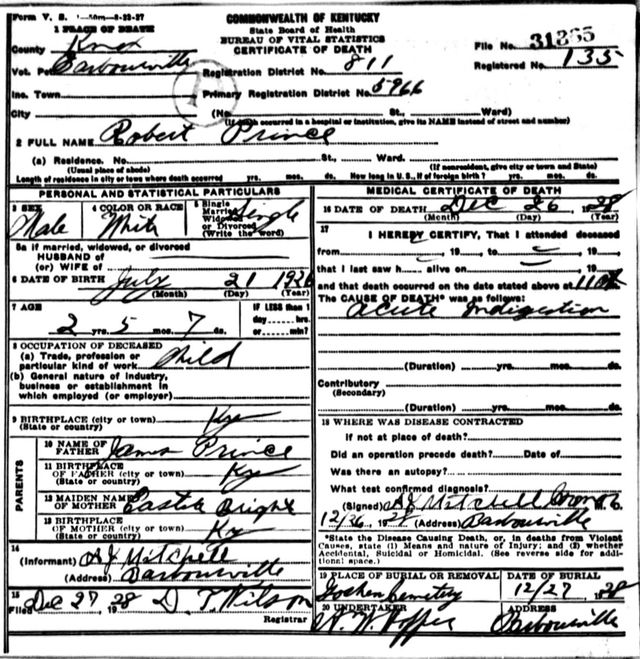 Form V. S. 1—50m—8-23-27
COMMONWEALTH OF KENTUCKY
State Board of Health
BUREAU OF VITAL STATISTICS
CERTIFICATE OF DEATH
1 PLACE OF DEATH
County Knox
File No. 31365
Vot. Pct. Barbourville
Registration District No. 811
Registered No. 135
Inc. Town
Primary Registration District No. 5966
City (No. St., Ward)
(If death occurred in a hospital or institution, give its NAME instead of street and number)
2 FULL NAME Robert Prince
(a) Residence. No. St., Ward.
(Usual place of abode) (If nonresident, give city or town and State)
Length of residence in city or town where death occurred yrs. mos. ds. How long in U. S., if of foreign birth? yrs. mos. ds.
PERSONAL AND STATISTICAL PARTICULARS
3 SEX Male
4 COLOR OR RACE White
5 Single Married Widowed or Divorced (Write the word) Single
5a If married, widowed, or divorced
HUSBAND of
(or) WIFE of
6 DATE OF BIRTH July 21 1926
(Month) (Day) (Year)
7 AGE
2 yrs. 5 mos. 7 ds.
IF LESS than 1 day hrs. or min?
8 OCCUPATION OF DECEASED
(a) Trade, profession or particular kind of work Child
(b) General nature of industry, business or establishment in which employed (or employer)
9 BIRTHPLACE (city or town) Ky
(State or country)
PARENTS
10 NAME OF FATHER James Prince
11 BIRTHPLACE OF FATHER (city or town) Ky
(State or country)
12 MAIDEN NAME OF MOTHER Bright
13 BIRTHPLACE OF MOTHER (city or town) Ky
(State or country)
14
(Informant) A J Mitchell
(Address) Barbourville
15
Filed Dec 27 1928 D. T. Wilson
Registrar
MEDICAL CERTIFICATE OF DEATH
16 DATE OF DEATH Dec 26 1928
(Month) (Day) (Year)
17
I HEREBY CERTIFY, That I attended deceased
from 19 to 19
that I last saw h alive on 19
and that death occurred on the date stated above at
The CAUSE OF DEATH* was as follows:
Acute Indigestion
(Duration) yrs. mos. ds.
Contributory
(Secondary)
(Duration) yrs. mos. ds.
18 WHERE WAS DISEASE CONTRACTED
If not at place of death?
Did an operation precede death? Date of
Was there an autopsy?
What test confirmed diagnosis?
(Signed) A J Mitchell
12/26, 19 (Address) Barbourville
*State the Disease Causing Death, or, in deaths from Violent
Causes, state (1) Means and nature of Injury; and (2) whether
Accidental, Suicidal or Homicidal. (See reverse side for addi-
tional space.)
19 PLACE OF BURIAL OR REMOVAL Cemetery
DATE OF BURIAL 12/27 1928
20 UNDERTAKER
ADDRESS Barbourville